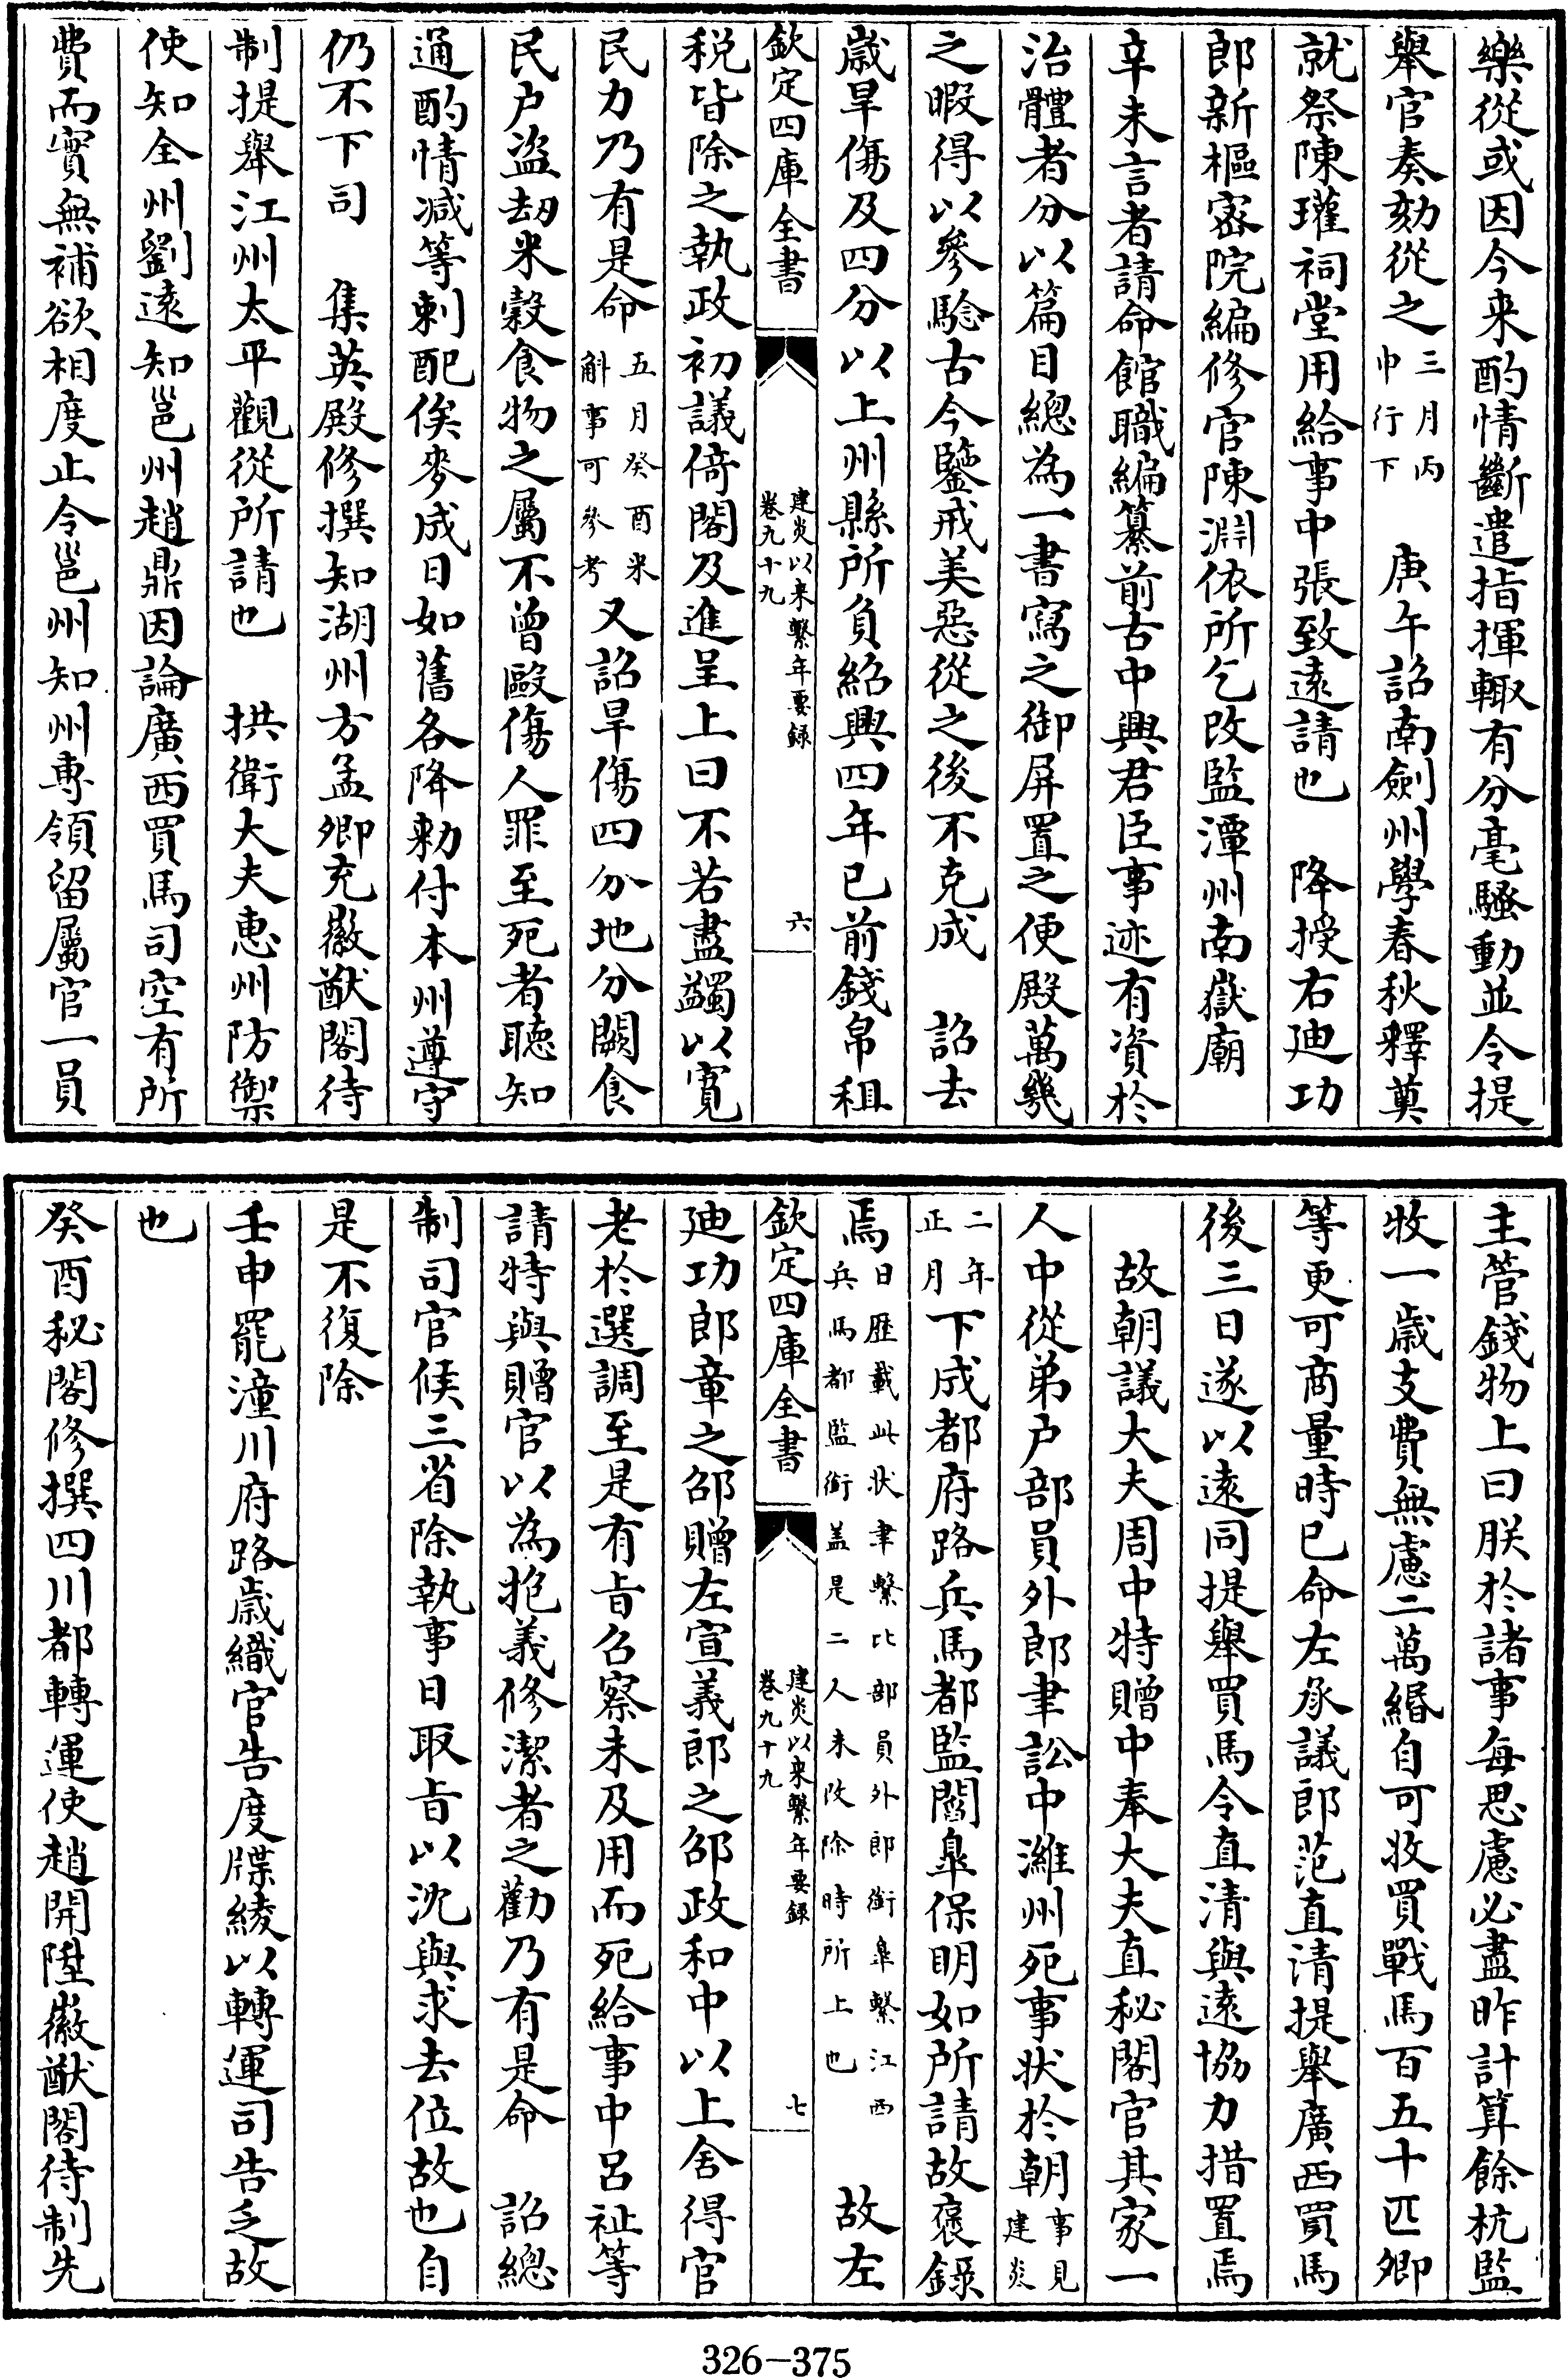 樂從或因今来酌情斷遣指揮輙有分毫騷動並令提
舉官奏劾從之三月丙申行下 庚午詔南劍州學春秋釋奠
就祭陳瓘祠堂用給事中張致遠請也 降授右廸功
郎新樞宻院編修官陳淵依所乞改監潭州南嶽廟
辛未言者請命館職編纂前古中興君臣事迹有資於
治體者分以篇目總為一書寫之御屏置之便殿萬幾
之暇得以參騐古今鑒戒美惡從之後不克成 詔去
歲旱傷及四分以上州縣所負紹興四年已前錢帛租
欽定四庫全書
建炎以来繫年要録
卷九十九
六
税皆除之執政初議倚閣及進呈上曰不若盡蠲以寛
民力乃有是命五月癸酉米斛事可參考又詔旱傷四分地分闕食
民户盜刼米穀食物之屬不曾毆傷人罪至死者聽知
通酌情減等刺配俟麥成日如舊各降勑付本州遵守
仍不下司 集英殿修撰知湖州方孟卿充徽猷閣待
制提舉江州太平觀從所請也 拱衛大夫惠州防禦
使知全州劉逺知邕州趙鼎因論廣西買馬司空有所
費而實無補欲相度止令邕州知州專領留屬官一員
主管錢物上曰朕於諸事每思慮必盡昨計算餘杭監
牧一歲支費無慮二萬緡自可收買戰馬百五十匹卿
等更可商量時已命左承議郎范直清提舉廣西買馬
後三日遂以逺同提舉買馬令直清與逺協力措置焉
故朝議大夫周中特贈中奉大夫直秘閣官其家一
人中從弟户部員外郎聿訟中濰州死事狀於朝事見建炎
二年正月下成都府路兵馬都監閻臯保明如所請故褒錄
焉日歴載此状聿繫比部員外郎銜臯繫江西兵馬都監銜盖是二人未改除時所上也 故左
欽定四庫全書
建炎以来繫年要録
卷九十九
七
廸功郎章之邵贈左宣義郎之邵政和中以上舍得官
老於選調至是有㫖召察未及用而死給事中呂祉等
請特與贈官以為抱義修潔者之勸乃有是命 詔總
制司官候三省除執事日取㫖以沈與求去位故也自
是不復除
壬申罷潼川府路歲織官告度牒綾以轉運司告乏故
也
癸酉秘閣修撰四川都轉運使趙開陞徽猷閣待制先
326-375